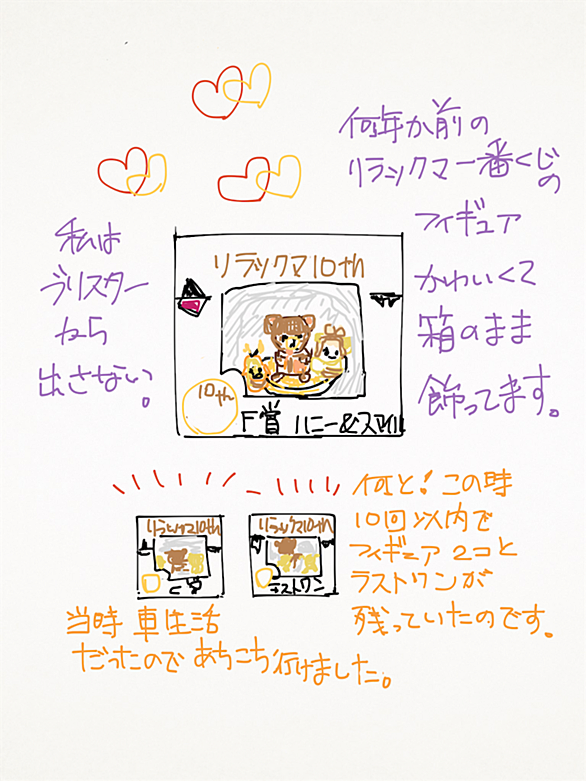 何年か前の
リラックマ一番くじの
フィギュア
かわいくて
箱のまま
飾ってます。
私は
ブリスター
から
出さない。
リラックマ10th
10th
F賞 ハニー&スマイル
何と！この時
10回以内で
フィギュア2コと
ラストワンが
残っていたのです。
リラックマ10th
リラックマ10th
ラストワン
当時 車生活
だったので あちこち行けました。